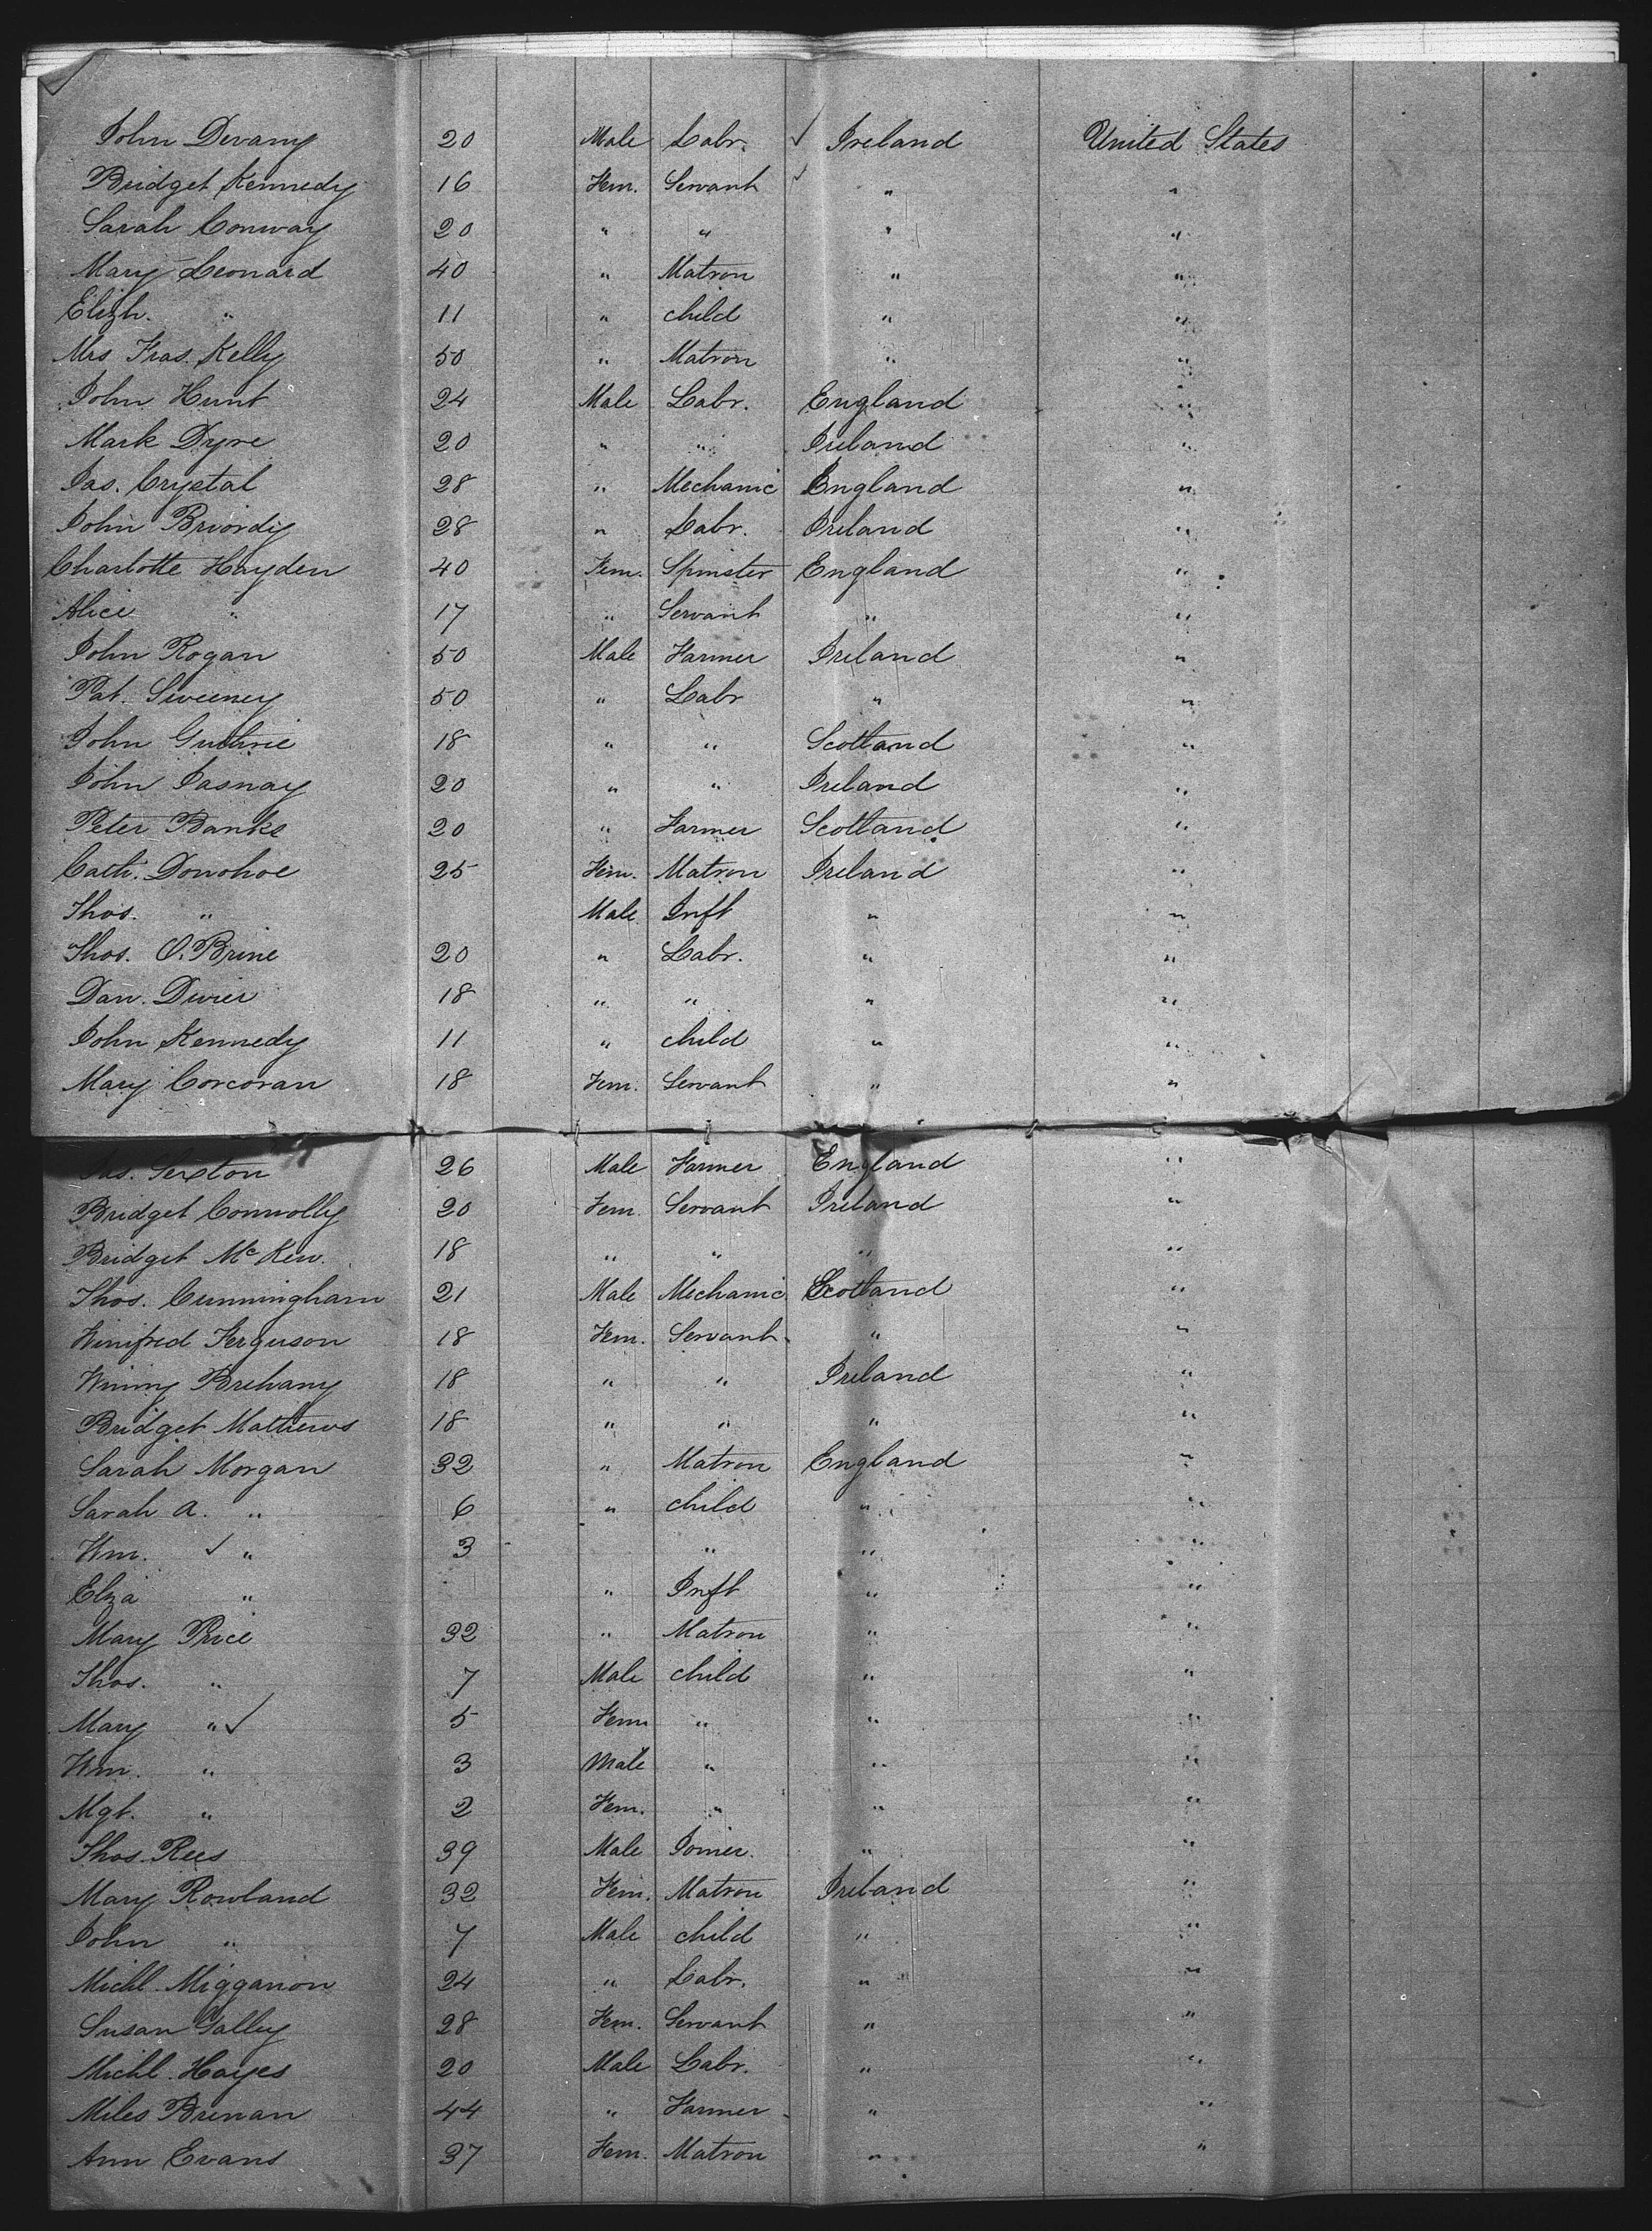 John Devany 20 Male Labr. ✓ Ireland United States
Bridget Kennedy 16 Fem. Servant ✓ " "
Sarah Conway 20 " " " "
Mary Leonard 40 " Matron " "
Elizh. " 11 " child " "
Mrs Fras. Kelly 50 " Matron " "
John Hunt 24 Male Labr. England "
Mark Dyre 20 " " Ireland "
Jas. Crystal 28 " Mechanic England "
John Briordy 28 " Labr. Ireland "
Charlotte Hayden 40 Fem. Spinster England "
Alice " 17 " Servant " "
John Rogan 50 Male Farmer Ireland "
Pat. Sweeney 50 " Labr " "
John Guthrie 18 " " Scotland "
John Jasnay 20 " " Ireland "
Peter Banks 20 " Farmer Scotland "
Cath. Donohoe 25 Fem. Matron Ireland "
Thos. " Male Inft " "
Thos. O.Brine 20 " Labr. " "
Dan. Dwier 18 " " " "
John Kennedy 11 " child " "
Mary Corcoran 18 Fem. Servant " "
Sexton 26 Male Farmer England "
Bridget Connolly 20 Fem. Servant Ireland "
Bridget McKew. 18 " " " "
Thos. Cunningham 21 Male Mechanic Scotland "
Winifred Ferguson 18 Fem. Servant " "
Winny Brehany 18 " " Ireland "
Bridget Mathews 18 " " " "
Sarah Morgan 32 " Matron England "
Sarah A. " 6 " child " "
Wm. ✓ " 3 " " "
Eliza " " Inft " "
Mary Price 32 " Matron " "
Thos. " 7 Male child " "
Mary " ✓ 5 Fem " " "
Wm. " 3 Male " " "
Mgt. " 2 Fem. " " "
Thos. Rees 39 Male Joiner. " "
Mary Rowland 32 Fem. Matron Ireland "
John " 7 Male child " "
Michl. Migganon 24 " Labr. " "
Susan Galley 28 Fem. Servant " "
Michl. Hayes 20 Male Labr. " "
Miles Brenan 44 " Farmer " "
Ann Evans 37 Fem. Matron " "